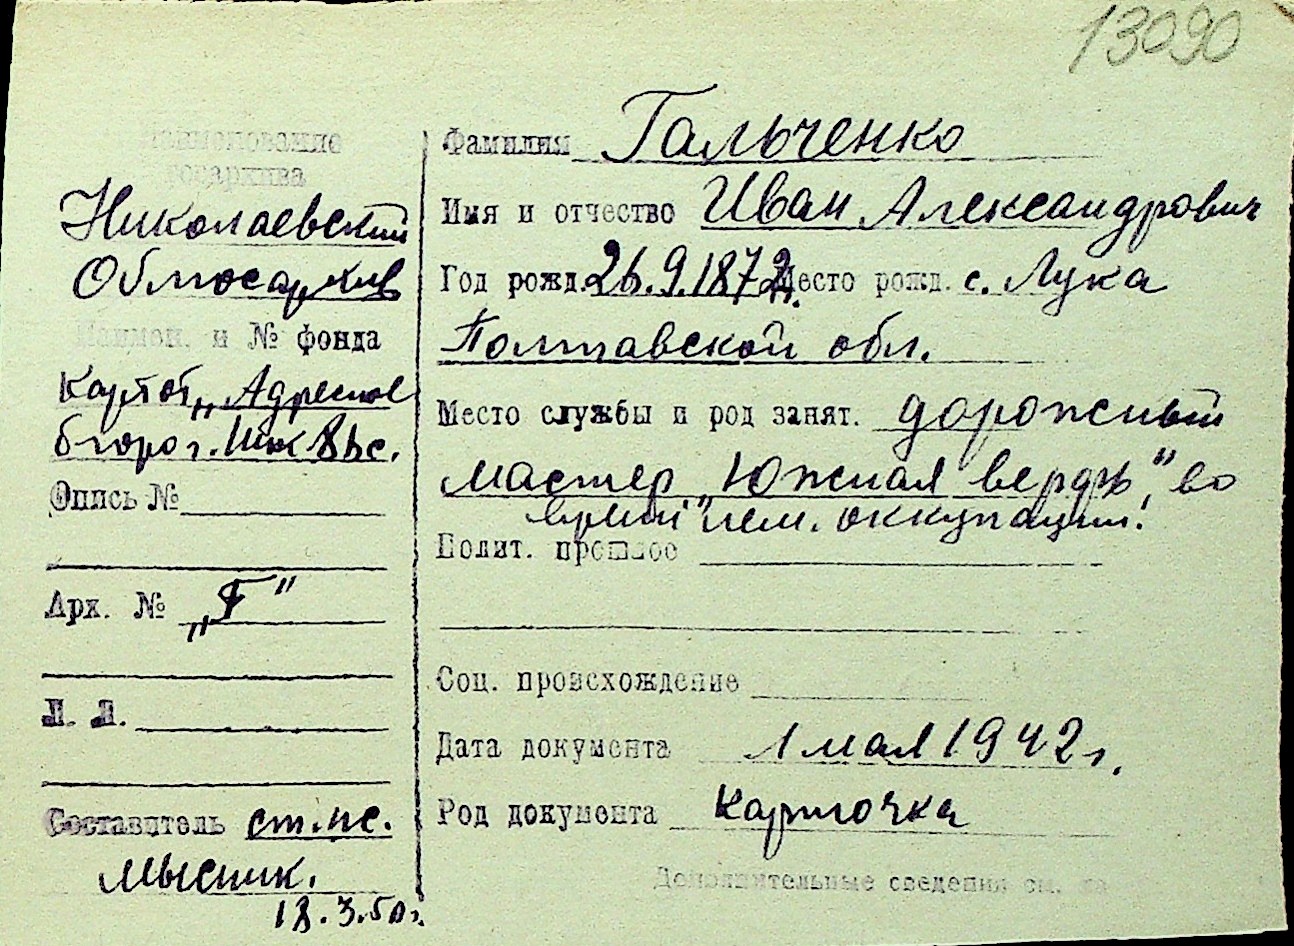 13090
Наименование
госархива
Николаевский
Облгосархив
Наимен. и № фонда
Картот. „Адресное
бюро г.
Опись №
Арх. № „Г"
Л. Л.
Составитель ст. нс.
Мысник.
18.3.50 г.
Фамилия Гальченко
Имя и отчество Иван Александрович
Год рожд. 26.9.1872 Место рожд. с. Лука
Полтавской обл.
Место службы и род занят. дорожный
мастер „Южная верфь", во
время нем. оккупации.
Полит. прошлое
Соц. происхождение
Дата документа 1 мая 1942 г.
Род документа карточка
Дополнительные сведения см. на